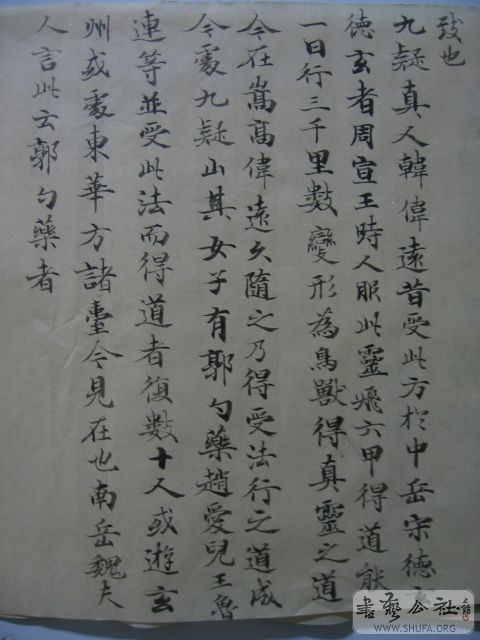 致也
九疑真人韓偉遠昔受此方於中岳宋德玄
德玄者周宣王時人服此靈飛六甲得道能
一日行三千里數變形為鳥獸得真靈之道
今在嵩高偉遠久隨之乃得受法行之道成
今處九疑山其女子有郭勺藥趙愛兒王魯
連等並受此法而得道者復數十人或遊玄
州或處東華方諸臺今見在也南岳魏夫
人言此云郭勺藥者
書藝公社
WWW.SHUFA.ORG